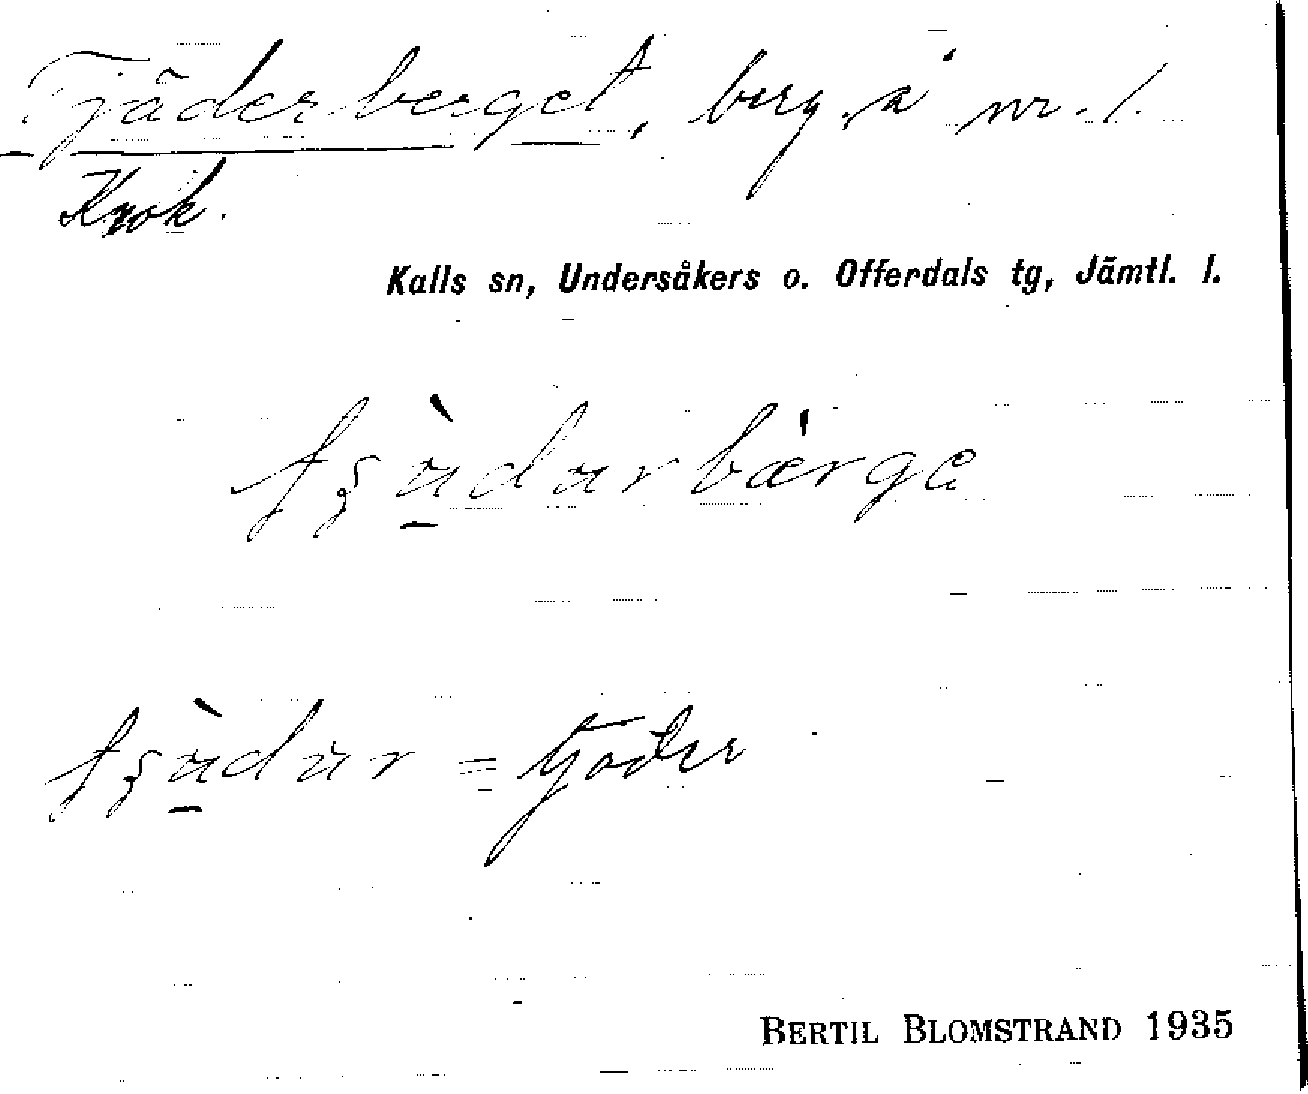 Tjäderberget, berg å nr. 1.
Krok.
Kalls sn, Undersåkers o. Offerdals tg, Jämtl. l.
= tjäder
BERTIL BLOMSTRAND 1935